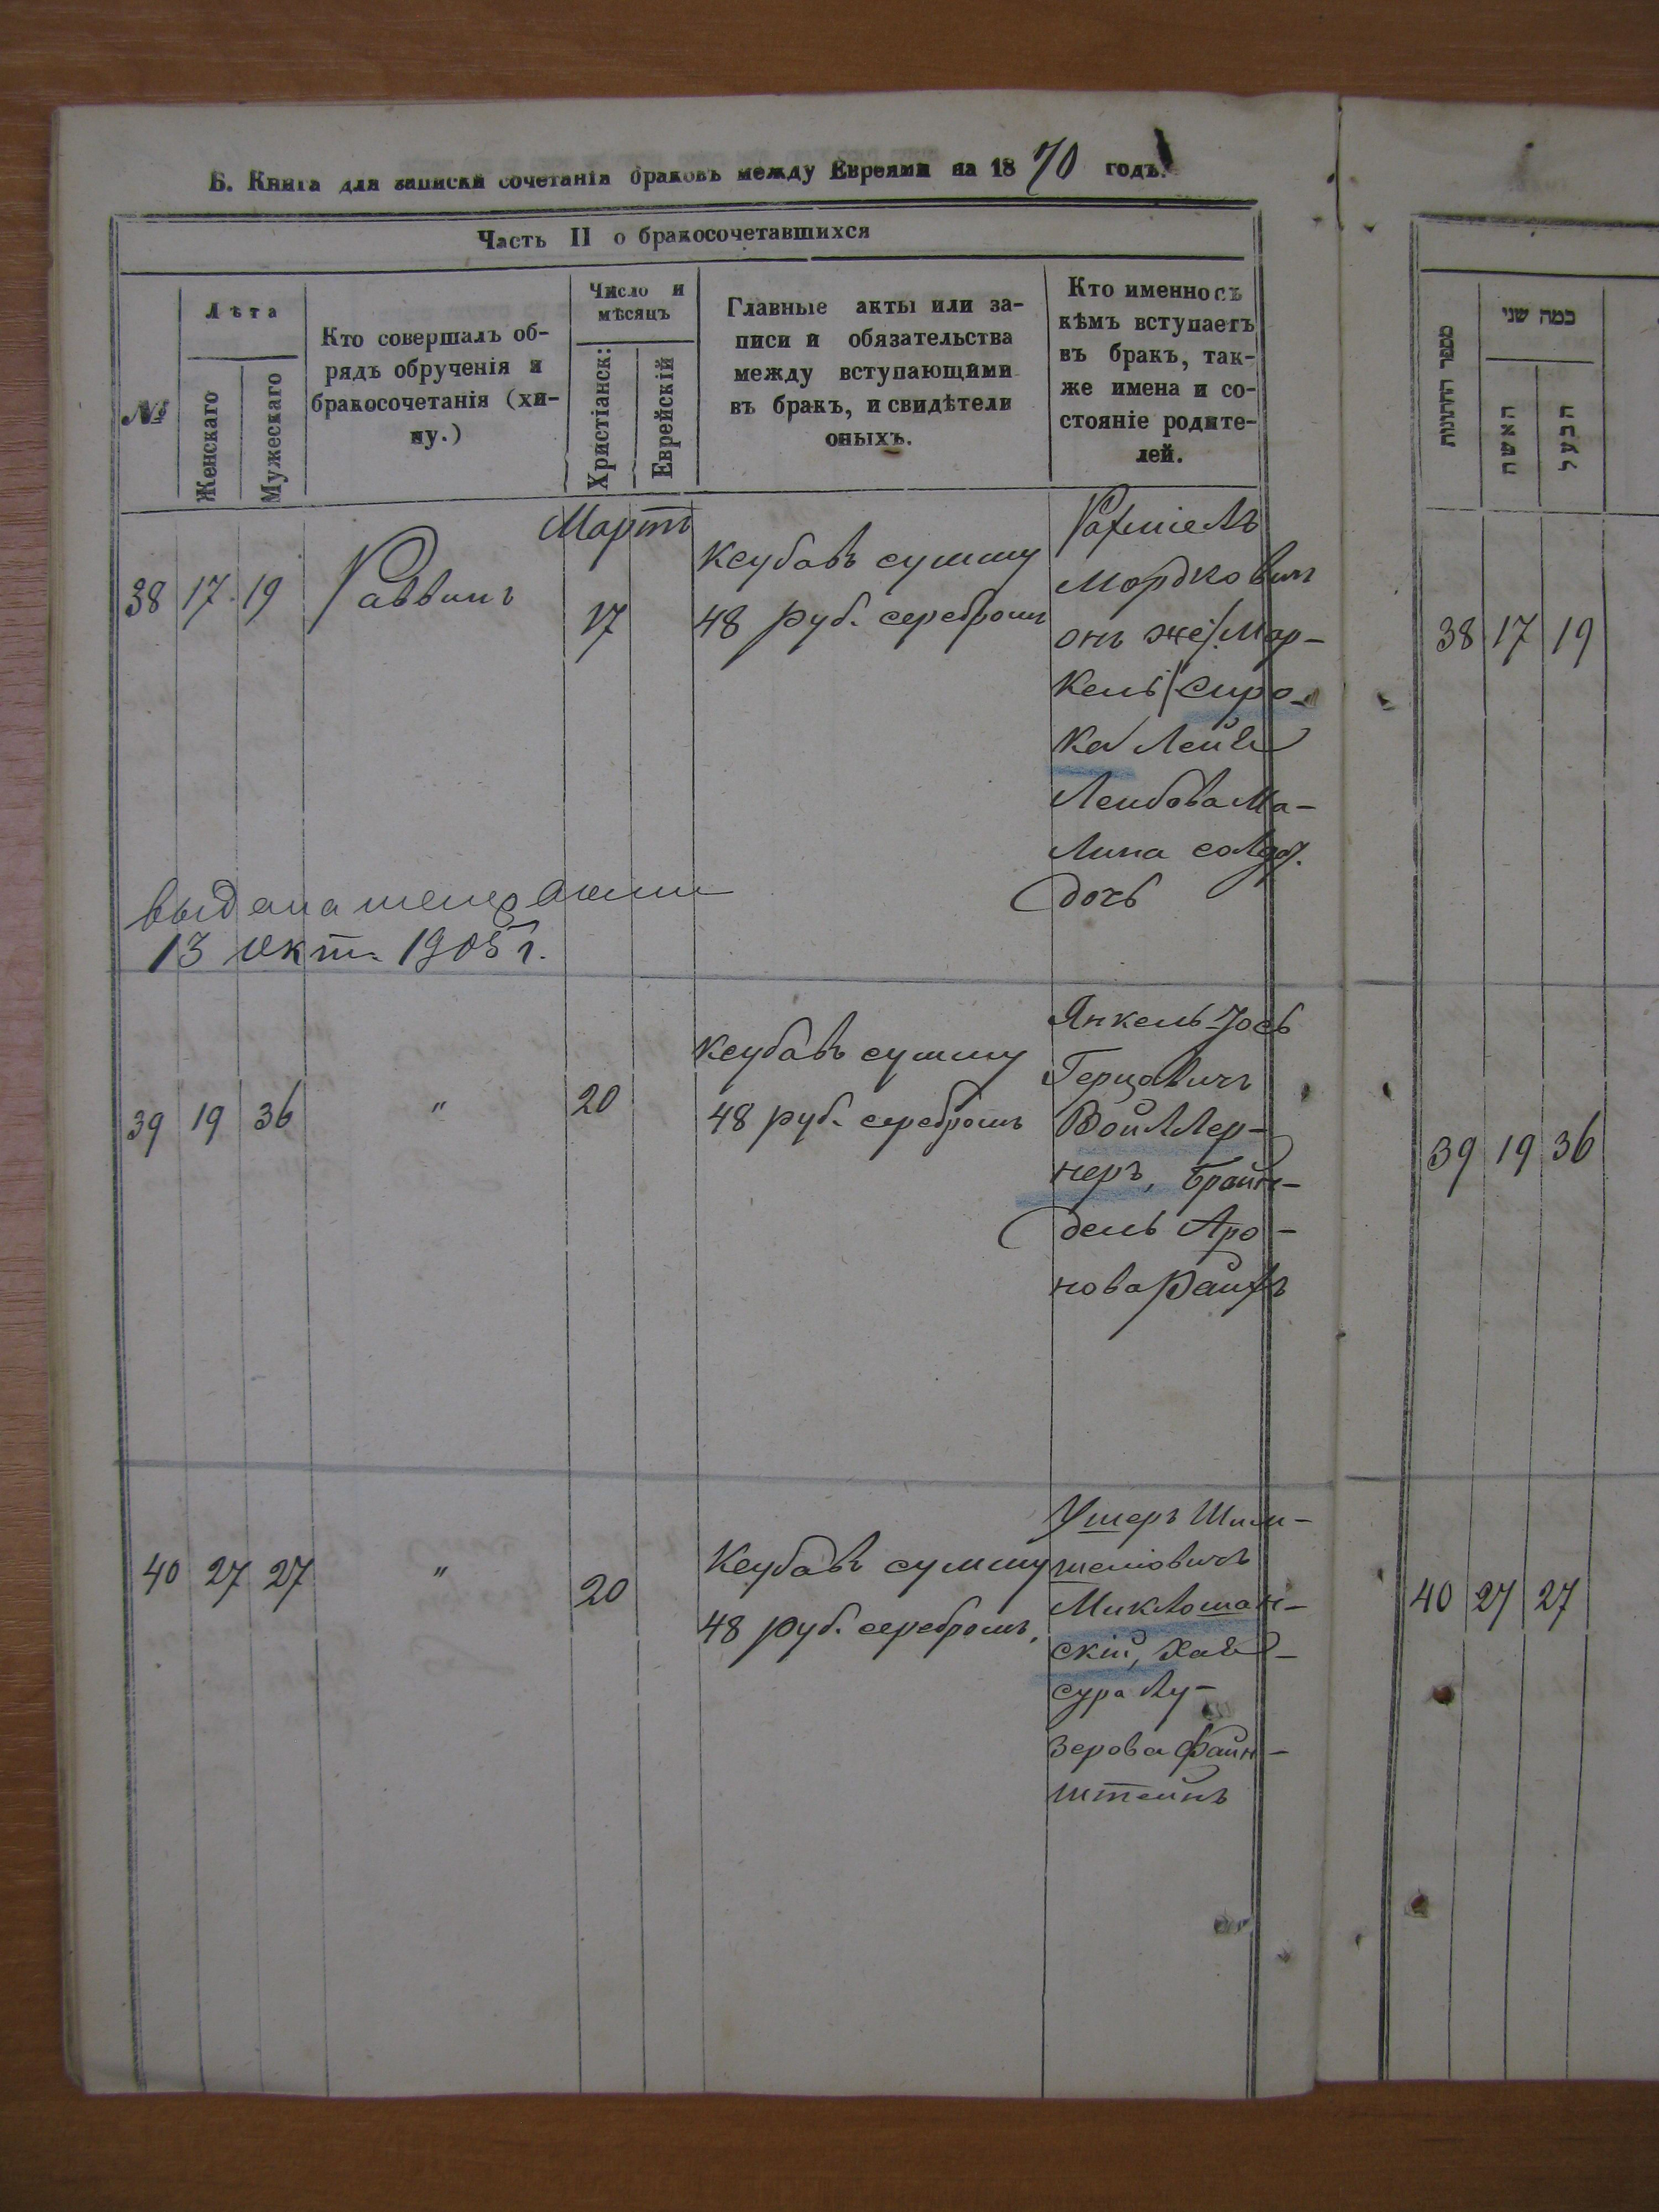 Б. Книга для записки сочетанія браковъ между Евреями на 1870 годъ.
Часть II о бракосочетавшихся
№
Лѣта
Женскаго
Мужескаго
Кто совершалъ об-
рядъ обрученія и
бракосочетанія (хи-
пу.)
Число и
мѣсяцъ
Христіанск:
Еврейскій
Главные акты или за-
писи и обязательства
между вступающими
въ бракъ, и свидѣтели
оныхъ.
Кто именно съ
кѣмъ вступаетъ
въ бракъ, так-
же имена и со-
стояніе родите-
лей.
Мартъ
38 17 19 Раввинъ 17
Ксубавъ сумму
48 руб. серебромъ
Рахміель
Мордковичъ
онъ же /Мар-
кель/ Сиро-
ка Лейя
Лейбова Ма-
лина солд.
дочь
выдана
13 Окт. 1905 г.
39 19 36 " 20
Ксубавъ сумму
48 руб. серебромъ
Янкель Іось
Герцовичъ
Войллер-
неръ, Брайн-
дель Аро-
нова Райхъ
40 27 27 " 20
Ксубавъ сумму
48 руб. серебромъ.
Ушеръ Шим-
шеліовичъ
Миклошан-
скій, Хая
Сура Лу-
зерова Файн-
штейнъ
מספר החתונות
כמה שני
האשה
הבעל
38 17 19
39 19 36
40 27 27